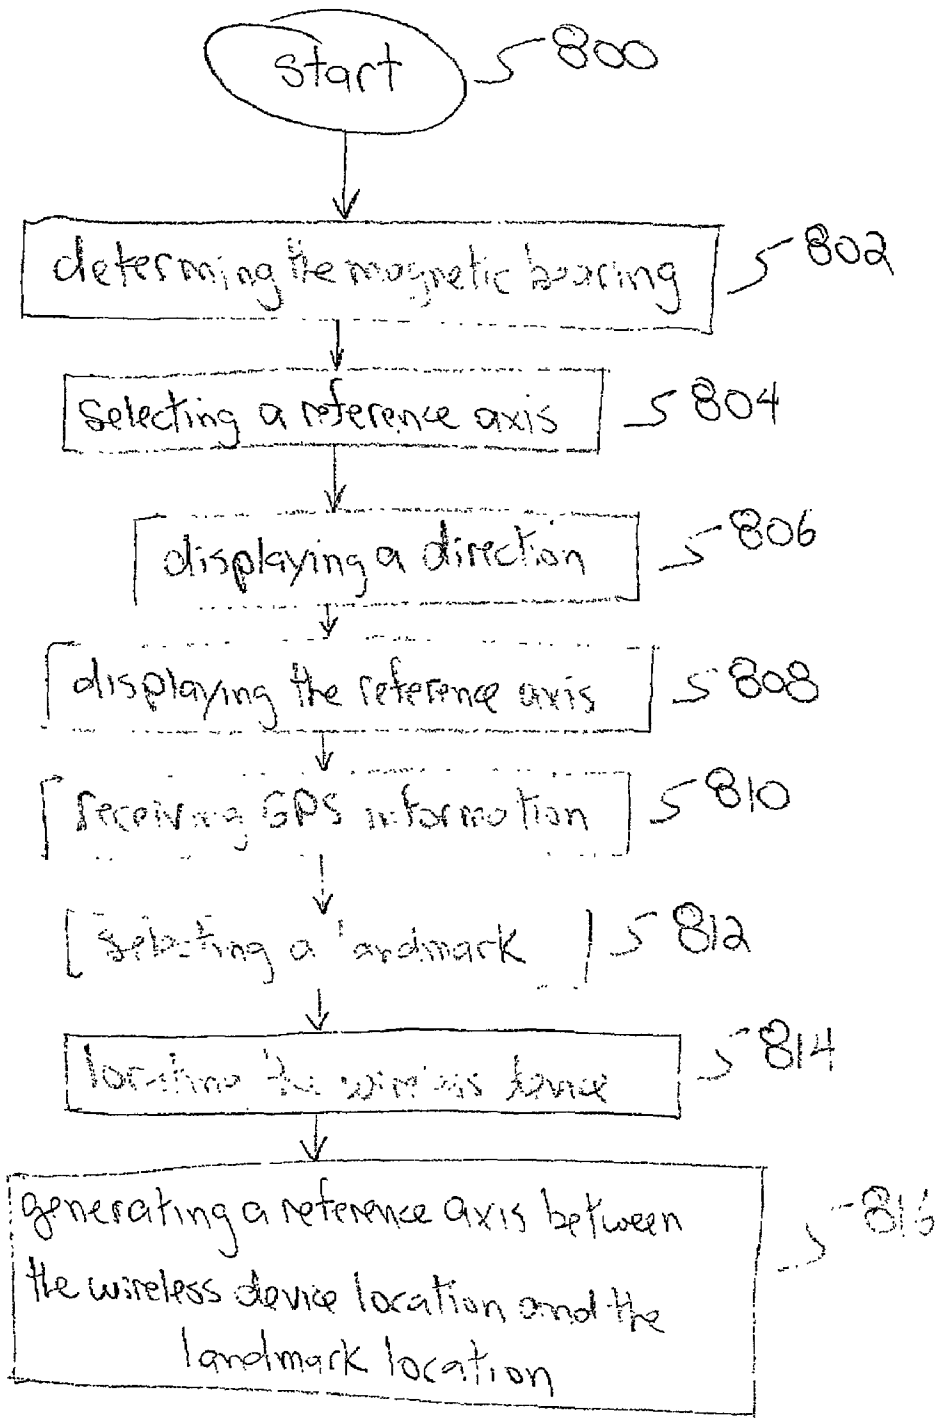 start 800
determining the magnetic bearing 802
selecting a reference axis 804
displaying a direction 806
displaying the reference axis 808
receiving GPS information 810
selecting a landmark 812
locating the wireless device 814
generating a reference axis between 816
the wireless device location and the
landmark location